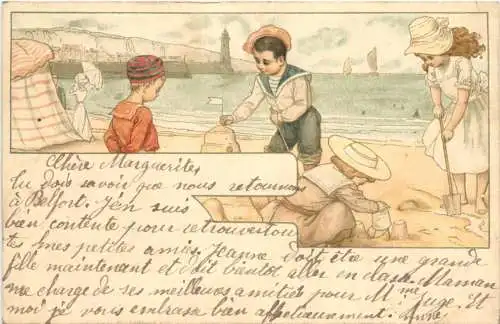 Chère Marguerite,
Tu dois savoir que nous retournons
à Belfort. J'en suis
bien contente pour retrouver toutes
mes petites amies. Jeanne doit être une grande
fille maintenant et doit bientôt aller en classe. Maman
me charge de ses meilleures amitiés pour Mme Juge. Et
moi je vous embrasse bien affectueusement. Anne.